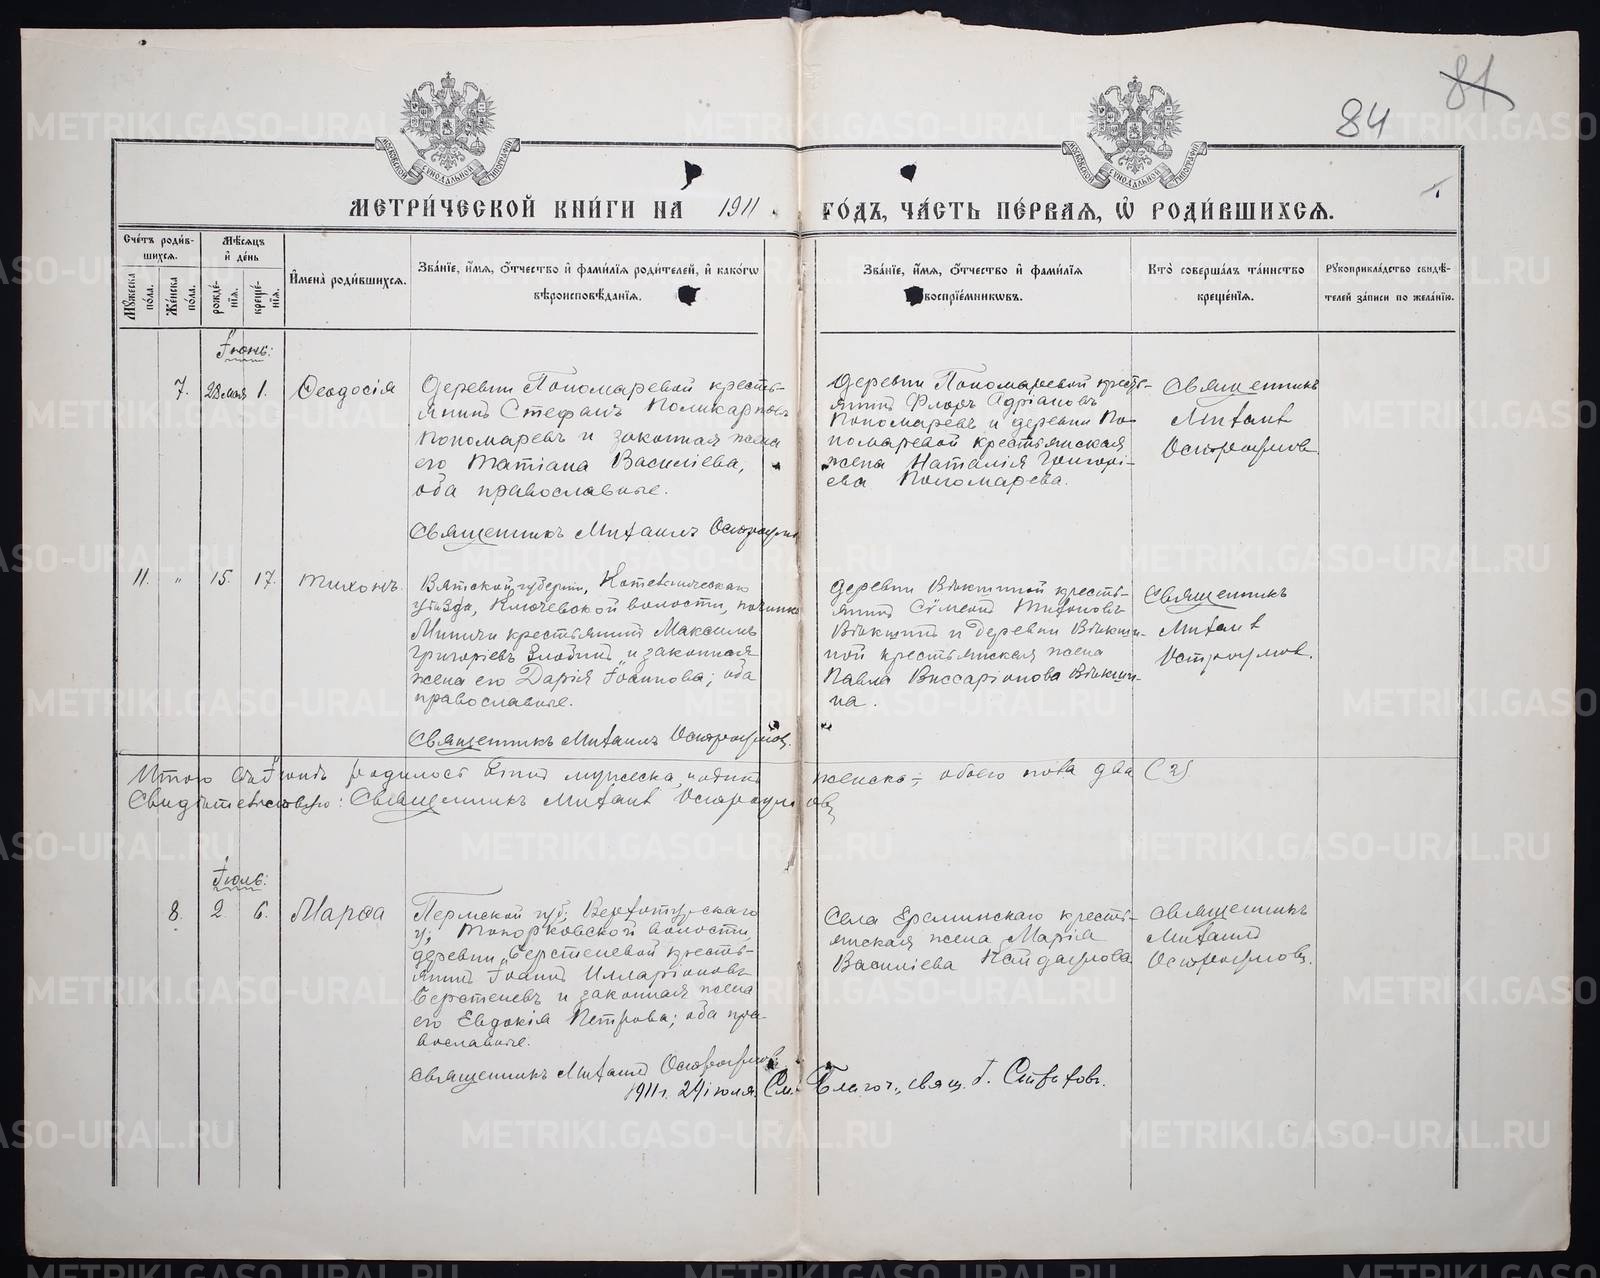 81
84
МОСКОВСКОЙ СѴНОДАЛЬНОЙ ТИПОГРАФІИ
МОСКОВСКОЙ СѴНОДАЛЬНОЙ ТИПОГРАФІИ
МЕТРИ́ЧЕСКОЙ КНИ́ГИ НА 1911 ГО́ДЪ, ЧА́СТЬ ПЕ́РВАЯ, Ѿ РОДИ́ВШИХСЯ.
Сче́тъ роди́в-
шихся.
Мѣ́сяцъ
и҆ де́нь
Мꙋ́жеска
по́ла.
Же́нска
по́ла.
рожде́-
нїя.
креще́-
нїя.
И҆мена̀ роди́вшихся.
Зва́нїе, и҆́мя, ѻ҆́тчество и҆ фами́лїя роди́телей, и҆ како́гѡ
вѣроисповѣ́данїя.
Зва́нїе, и҆́мя, ѻ҆́тчество и҆ фами́лїя
воспрїе́мникѡвъ.
Кто̀ соверша́лъ та́инство
креще́нїя.
Рꙋкоприкла́дство свидѣ́-
телей за́писи по жела́нїю.
Іюнь:
7. 23 мая 1. Ѳеодосія
Деревни Пономаревой кресть-
янинъ Стефанъ Поликарповъ
Пономаревъ и законная жена
его Татіана Василіева,
оба православные.
Священникъ Михаилъ Остроумов
Деревни Пономаревой кресть-
янинъ Флоръ Адріановъ
Пономаревъ и деревни По-
номаревой крестьянская
жена Наталія Григорі-
ева Пономарева.
Священникъ
Михаил
Остроумов
11. " 15. 17. Тихонъ.
Вятской губерніи, Котельническаго
уѣзда, Ключевской волости, починка
Миничи крестьянинъ Максимъ
Григоріевъ Злобинъ и законная
жена его Дарія Іоаннова; оба
православные.
Священникъ Михаилъ Остроумов.
Деревни Вѣкшиной кресть-
янинъ Сѵмеонъ Тихоновъ
Вѣкшинъ и деревни Вѣкши-
ной крестьянская жена
Павла Виссаріонова Вѣкши-
на.
Священникъ
Михаил
Остроумов.
Итого въ Іюнѣ родилось одинъ мужеска, и одинъ женска; обоего пола два (2)
Свидѣтельствую: Священникъ Михаил Остроумовъ
Іюль:
8. 2 6. Марѳа
Пермской губ; Верхотурскаго
у; Топорковской волости,
деревни Берстеневой кресть-
янинъ Іоаннъ Илларіоновъ
Берстеневъ и законная жена
его Евдокія Петрова; оба пра-
вославные.
Священникъ Михаилъ Остроумовъ
Села Ереминскаго кресть-
янская жена Марія
Василіева Кайдаулова
Священникъ
Михаилъ
Остроумовъ.
1911 г. 24 іюля. См. Благоч., свящ. І. Стефановъ.